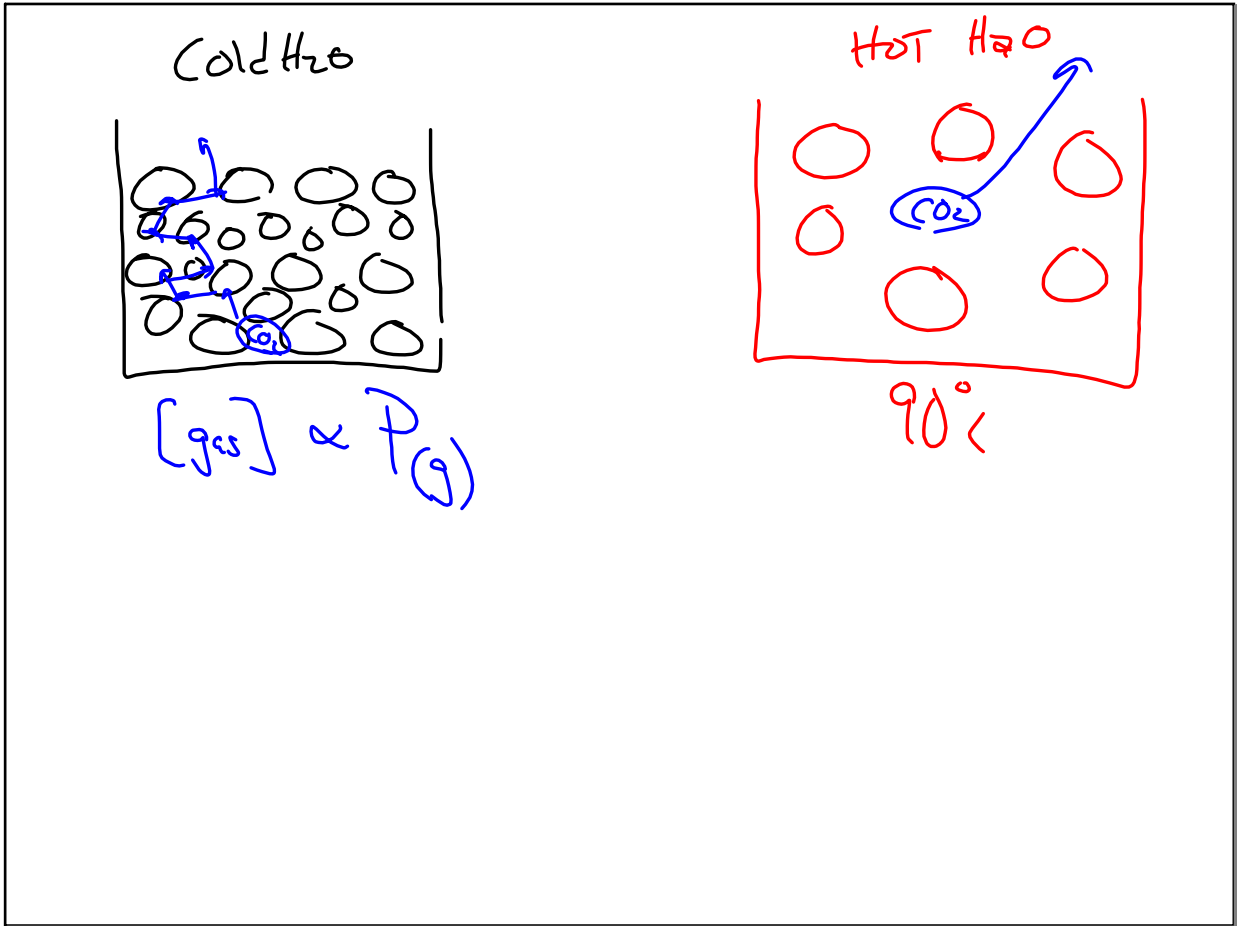 Cold H2O
CO2
[gas] ∝ P(g)
HOT H2O
CO2
90°C